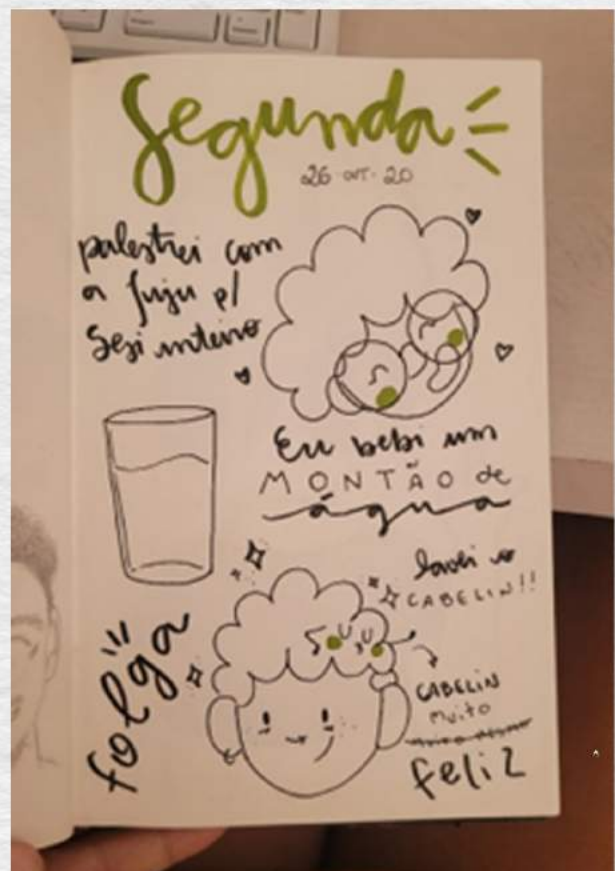 Segunda
26·OUT·20
palestrei com
a Juju p/
Sesi inteiro
Eu bebi um
MONTÃO de
água
lavei o
CABELIN!!
folga
CABELIN
Muito
feliz